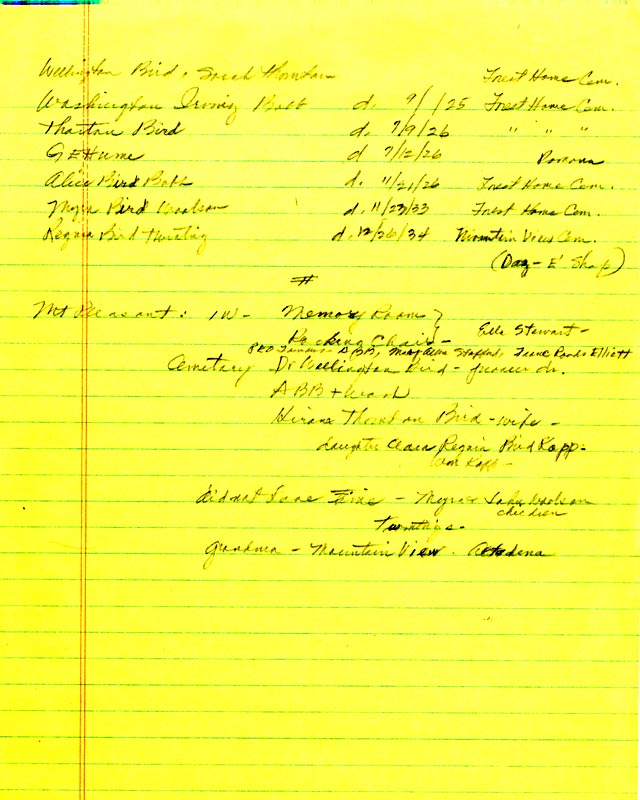 Wellington Bird & Sarah Thornton Forest Home Cem.
Washington Irving Babb d. 9/ /25 Forest Home Cem.
Thorton Bird d. 7/9/26 " " "
G E Hume d 7/12/26 Pomona
Alice Bird Babb d. 11/21/26 Forest Home Cem.
Myra Bird Woolson d. 11/23/33 Forest Home Cem.
Regina Bird Twinting d. 12/26/34 Mountain View Cem.
(Day - E' Shop)
#
Mt Pleasant: IW - Memory Room }
Rocking Chair - Ella Stewart -
PEO Founders ABB, Mary Allen Stafford, Franc Roads Elliott
Cemetary Dr Wellington Bird - pioneer dr.
ABB + Wash
Hiram Thornton Bird - wife -
daughter Clara Regina Bird Kopp -
Wm Kopp -
did not - Myra's John Woolson
children
Grandma - Mountain View. Altadena